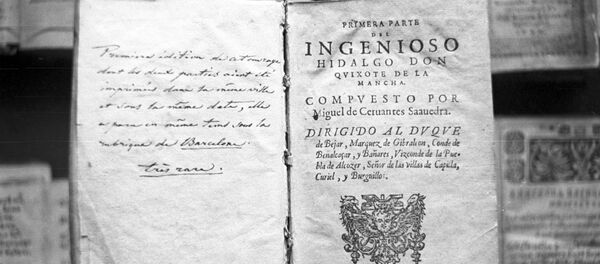 Première édition de cet ouvrage
dont les deux parties aient été
imprimées dans la même ville
et sous la même date, elle
a paru en même tems sous la
rubrique de Barcelone.
très rare.
PRIMERA PARTE
DEL
INGENIOSO
HIDALGO DON
QVIXOTE DE LA
MANCHA.
COMPVESTO POR
Miguel de Ceruantes Saauedra.
DIRIGIDO AL DVQVE
de Bejar, Marquez de Gibraleon, Conde de
Benalcaçar, y Bañares, Vizconde de la Pue-
bla de Alcozer, Señor de las villas de Capilla,
Curiel, y Burguillos.